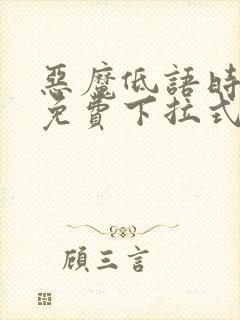 惡魔低語時
免費下拉式
顧三言